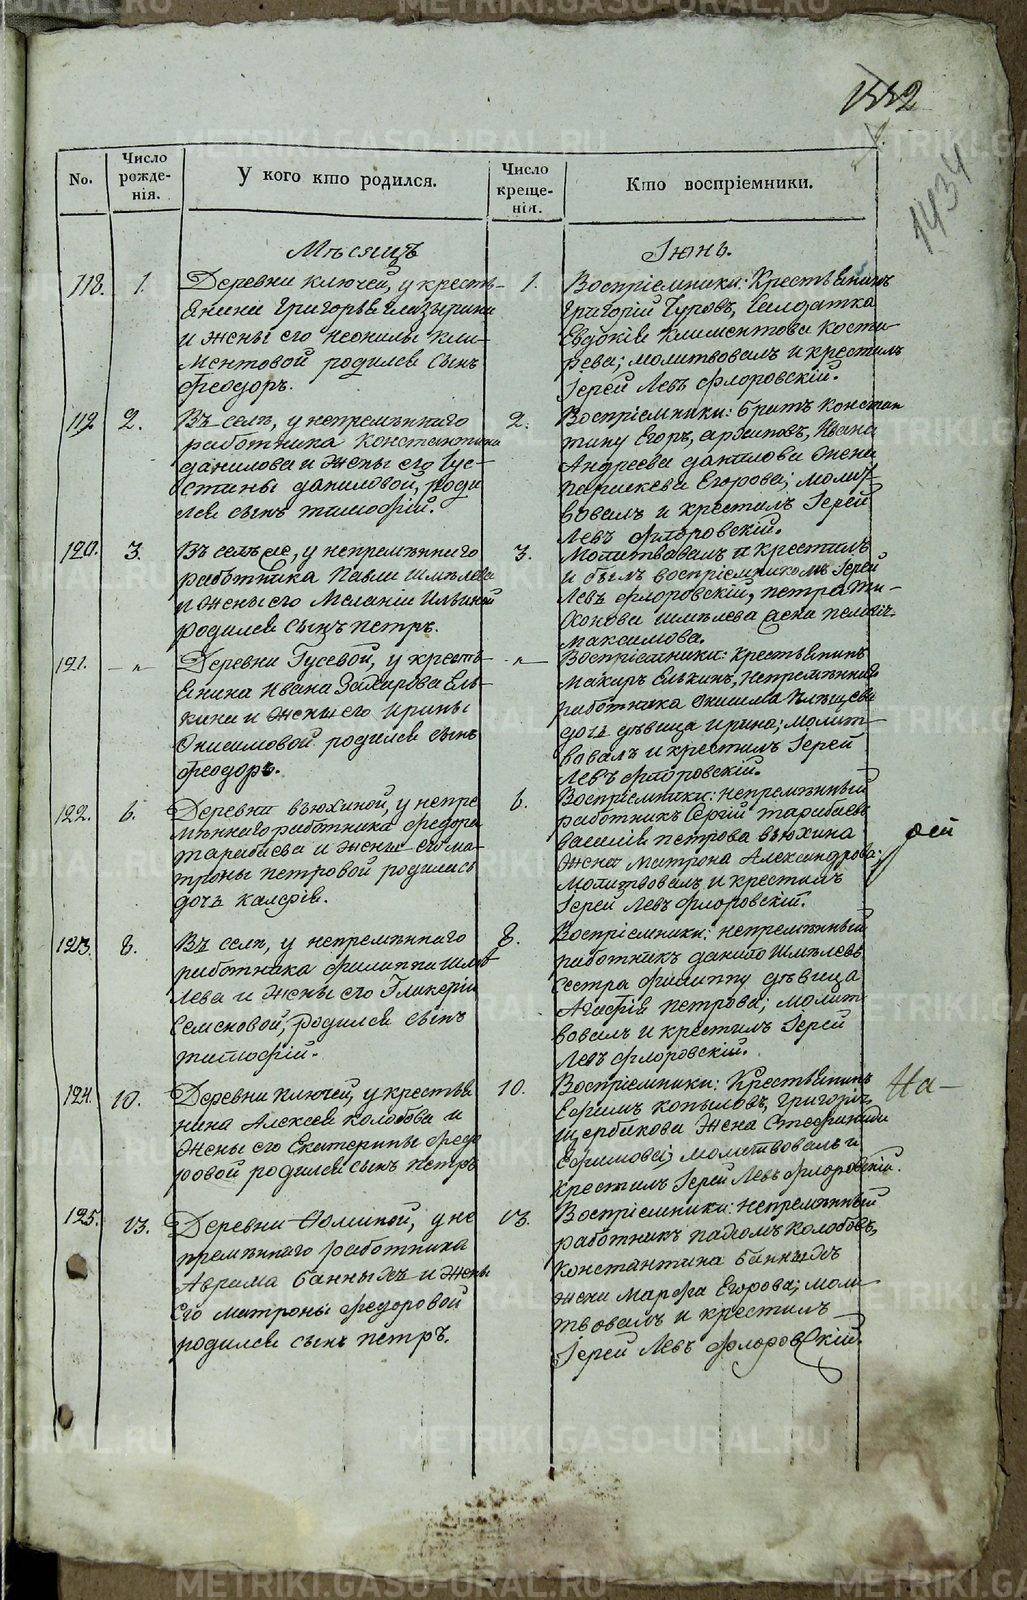 METRIKI.GASO-URAL.RU
1332
1434
No.
Число рожде-нія.
У кого кто родился.
Число креще-нія.
Кто воспріемники.
Мѣсяцъ
Іюнь.
118. 1.
Деревни Ключей, у кресть-
янина Григорья Глазырина
и жены его Неонилы Кли-
ментовой родился сынъ
Феодоръ.
1.
Воспріемники: Крестьянинъ
Григорій Гуровъ, Салдатка
Евдокія Климентова Косты-
рева; молитвовалъ и крестилъ
Іерей Левъ Флоровскій.
119. 2.
Въ селѣ, у непремѣннаго
работника Константина
Данилова и жены его Іус-
тины Даниловой, роди
лся сынъ Тимофій.
2.
Воспріемники: братъ Констан
тину Егоръ Архиповъ, Ивана
Андреева Данилова жена
Параскева Егорова; молит-
вовалъ и крестилъ Іерей
Левъ Флоровскій.
120. 3.
Въ селѣ, у непремѣннаго
работника Павла Шмѣлева
и жены его Меланіи Ильиной
родился сынъ Петръ.
3.
Молитвовалъ и крестилъ
и былъ воспріемникомъ Іерей
Левъ Флоровскій, Петра Ти-
хонова Шмѣлева жена
Максимова.
121. -"-
Деревни Гусевой, у кресть
янина Ивана Захарова Ель-
кина и жены его Ирины
Онисимовой родился сынъ
Феодоръ.
-"-
Воспріемники: крестьянинъ
Макаръ Елькинъ, непремѣннаго
работника Онисима
дочь дѣвица Ирина; молит-
вовалъ и крестилъ Іерей
Левъ Флоровскій.
122. 6.
Деревни Вьюхиной, у непре
мѣннаго работника Федора
Тарабаева и жены его Ма-
троны Петровой родилась
дочь
6.
Воспріемники: непремѣнный
работникъ Сергій Тарабаевъ
Василія Петрова Вьюхина
жена Матрона Александрова;
молитвовалъ и крестилъ
Іерей Левъ Флоровскій.
123. 8.
Въ селѣ, у непремѣннаго
работника Филиппа Шмѣ
лева и жены его Гликеріи
Семеновой, родился сынъ
Тимофій.
8.
Воспріемники: непремѣнный
работникъ Данило Шмѣлевъ
сестра Филиппу дѣвица
Агафія Петрова; молит
вовалъ и крестилъ Іерей
Левъ Флоровскій.
124. 10.
Деревни Ключей, у крестья
нина Алексея Колобова и
жены его Екатерины Федо
ровой родился сынъ Петръ
10.
Воспріемники: Крестьянинъ
Ефимъ Копыловъ, Григорья
Щербакова жена Стефанида
Ефимова; молитвовалъ и
крестилъ Іерей Левъ Флоровскій.
На-
125. 13.
Деревни Фоминой, у не
премѣннаго работника
Аврама Банныхъ и жены
его Матроны Федоровой
родился сынъ Петръ.
13.
Воспріемники: непремѣнный
работникъ Пахомъ Колобовъ,
Константина Банныхъ
жена Марфа Егорова; моли-
твовалъ и крестилъ
Іерей Левъ Флоровскій.